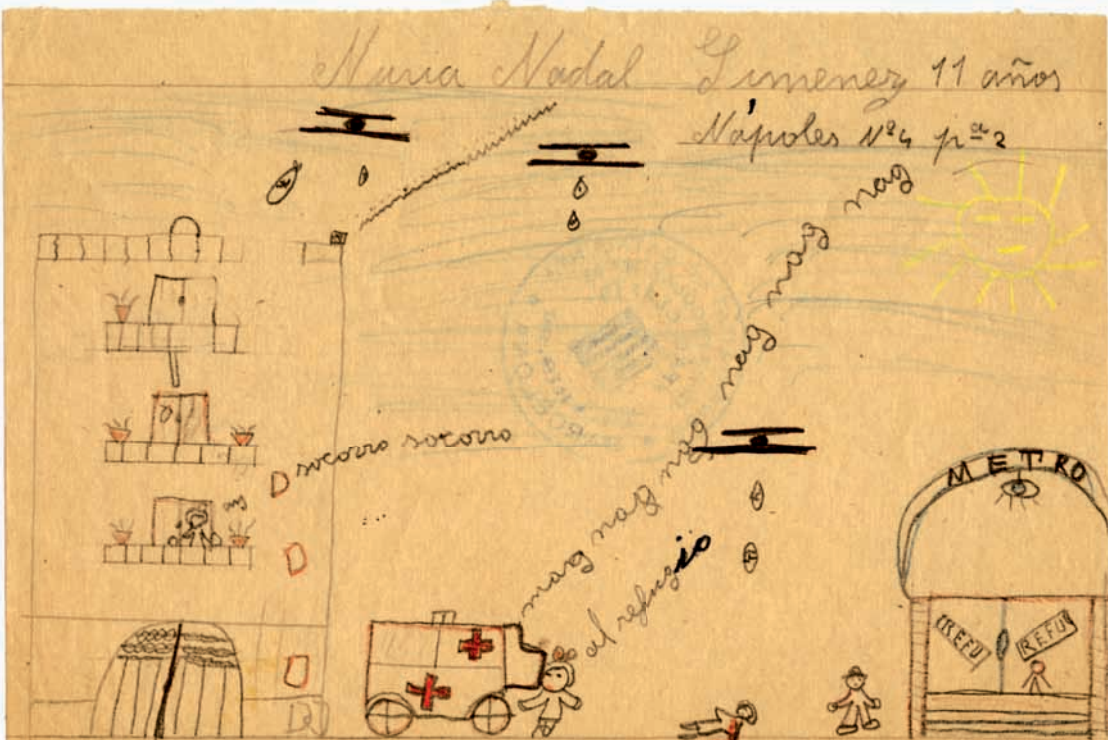 Nuria Nadal Gimenez 11 años
Nápoles Nº 4 pª 2
socorro socorro
nag nag nag nag nag nag nag
al refugio
METRO
REFU
REFU